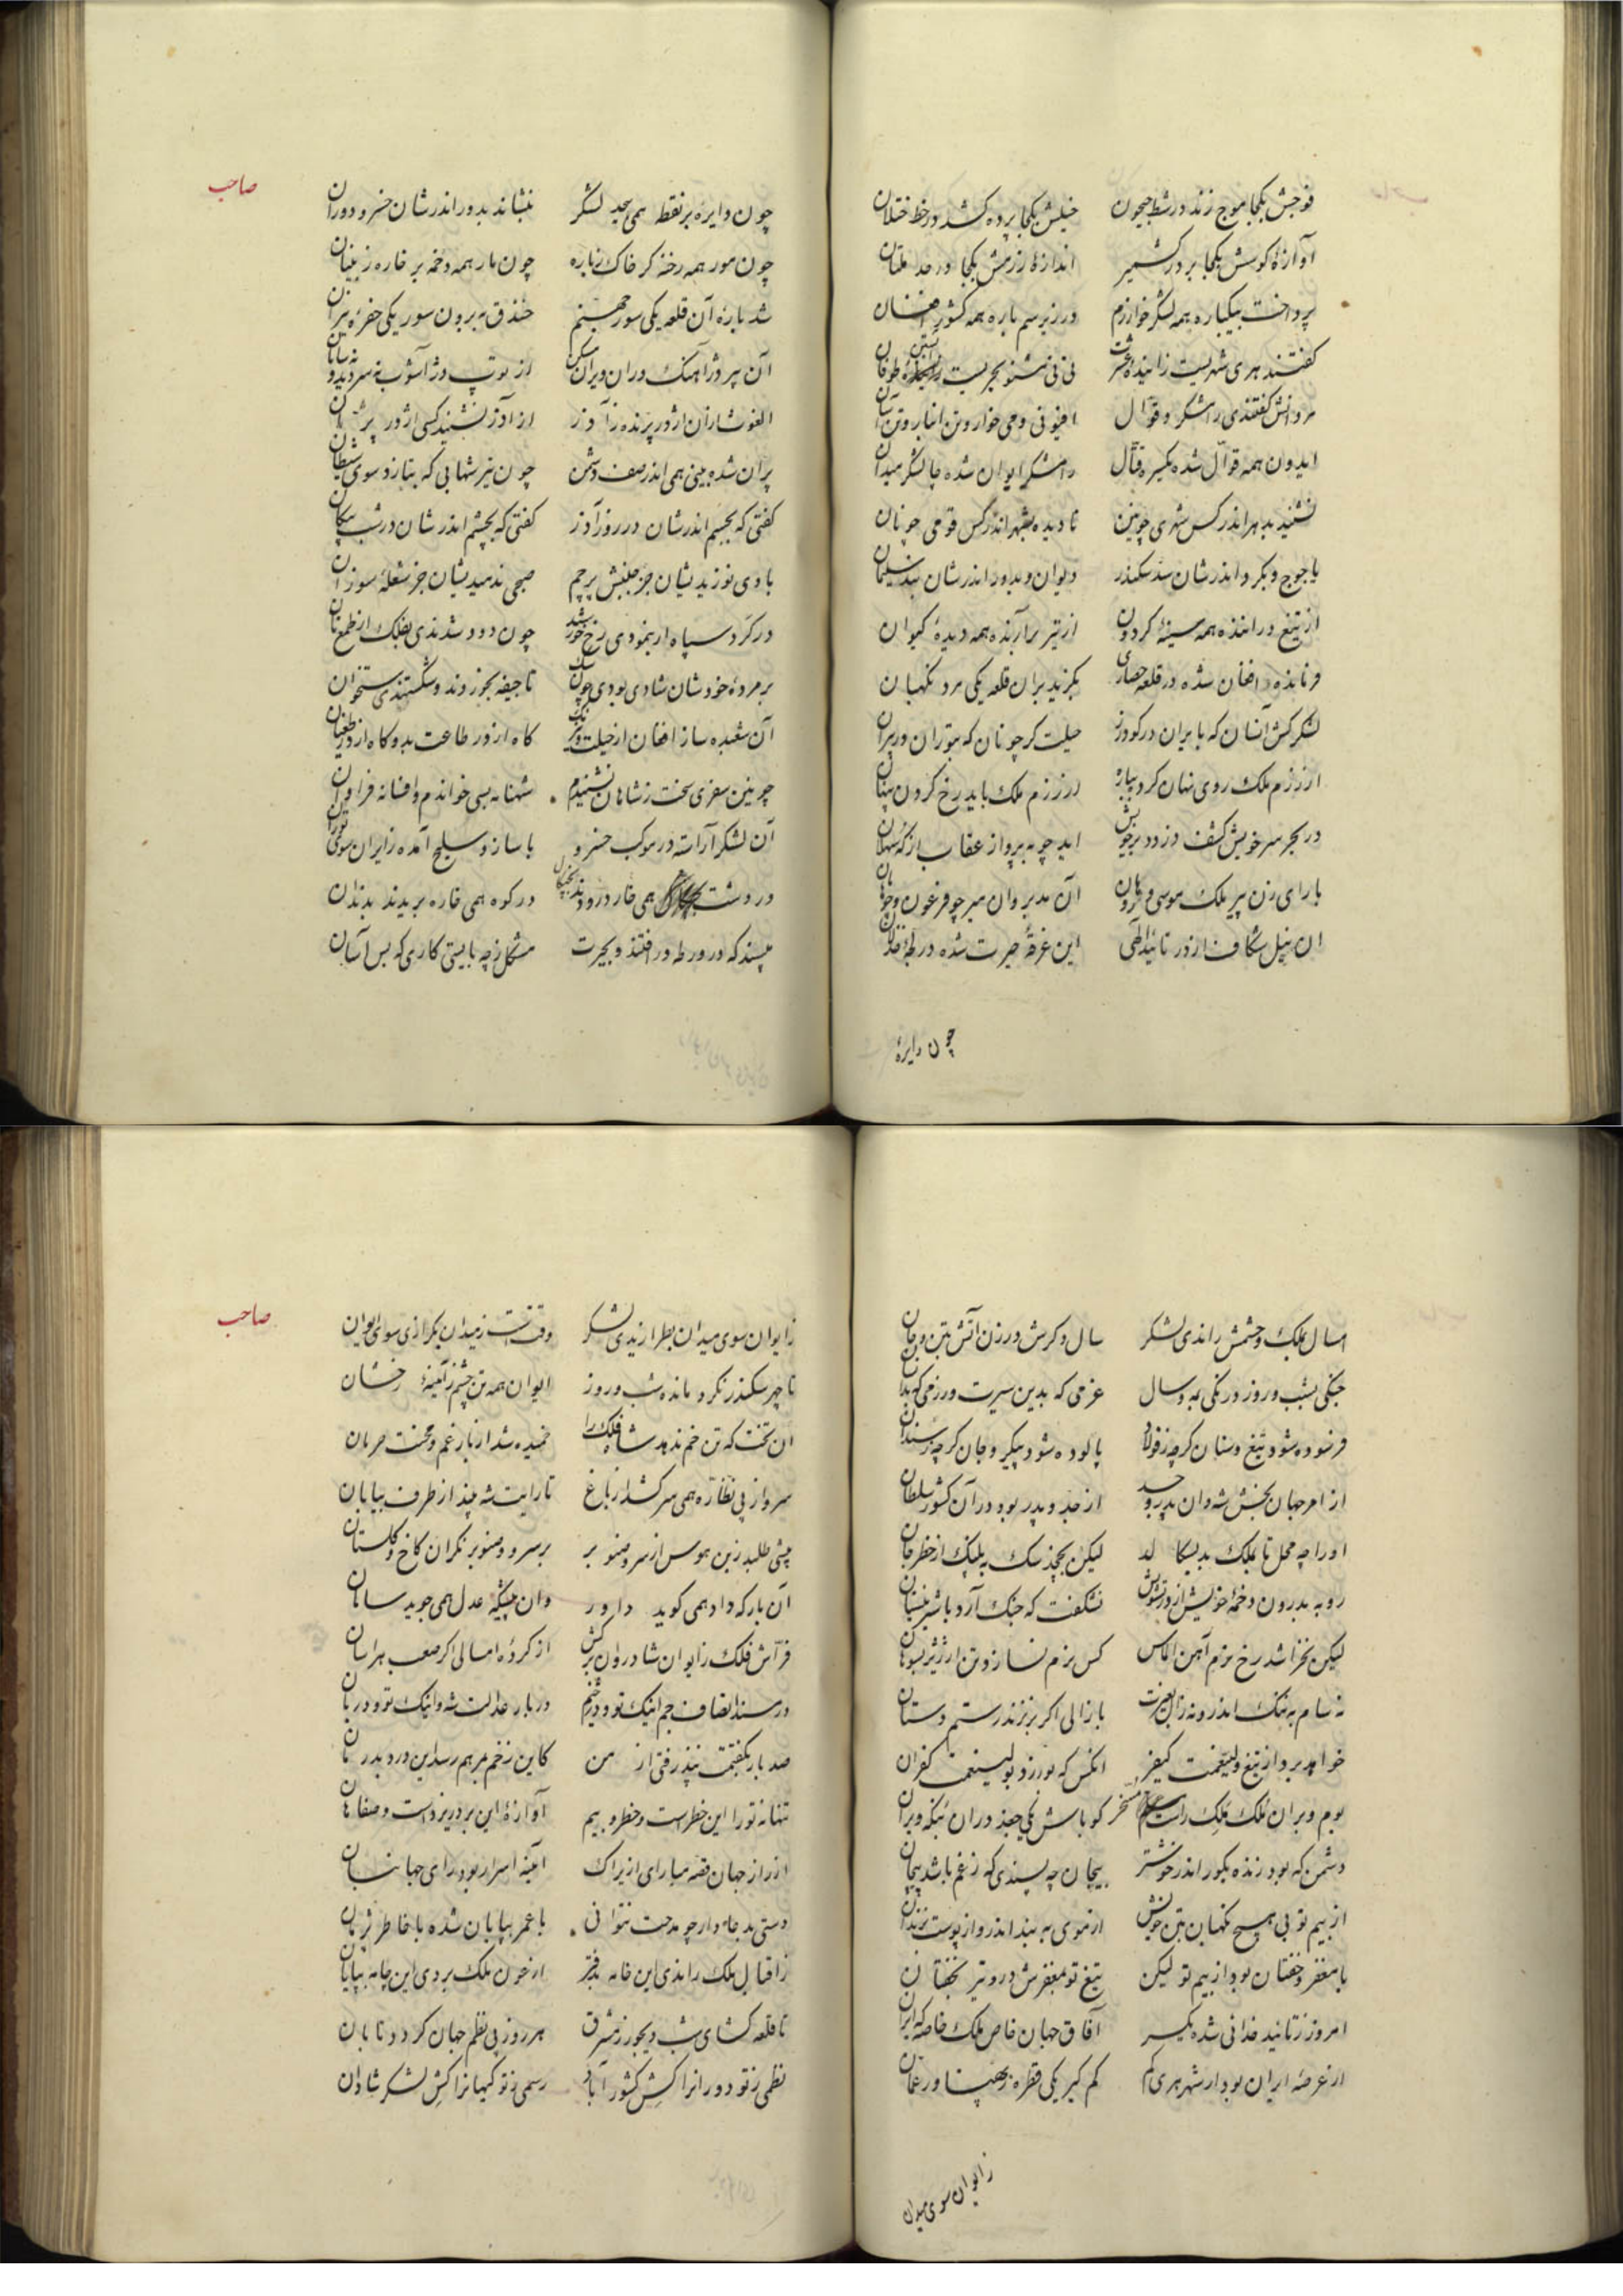 فوجش بکجا موج زند در شط جیحون خیلش بکجا پرده کشد در خط ختلان
آوازهٔ کوسش بکجا بر در کشمیر اندازهٔ رزمش بکجا در حد ملتان
پرداخت بیکباره همه لشکر خوارزم در زیر سم باره همه کشور افغان
گفتند هری شهریست نی نی مشنو بحریست طوفان
مردانش گفتندی رامشگر و قوال افیونی و می خوار و تن انبار و تن آسان
ایدون همه قوال شده یکسره قتال رامشگر ایوان شده چالشگر میدان
نشنید بدهر اندر کس شهری چونین نادیده بشهر اندر کس قومی چونان
یاجوج و بگرد اندرشان سد سکندر دیوان و بدور اندرشان بند سلیمان
از تیغ درانده همه سینهٔ گردون از تیر برآرنده همه دیدهٔ کیوان
فرمانده افغان شده در قلعه حصاری بگزید بران قلعه یکی مرد نگهبان
لشکرکش آنسان که بایران در گودرز حیلت گر چونان که بتوران در پیران
از رزم ملک روی نهان کرد بباره در رزم ملک باید رخ کردن پنهان
در بحر سر خویش کشف دزدد بر جوش اید چو بپرواز عقاب از که ثهلان
با رای زن پیر ملک موسی و هارون آن مدبر وان میر چو فرعون و چو هامان
ان نیل شکاف از در تائید الهی این غرقهٔ حیرت شده در لجهٔ خذلان
چون دایرهٔ
صاحب
چون دایره بر نقطه همی لشکر بنشاند بدور اندرشان خسرو دوران
چون مور همه رخنه گر خاک چون مار همه دخمه بر خاره
شد بارهٔ آن قلعه یکی سور جهنم خندق به برون سور یکی حفرهٔ نیران
آن پر دژآهنگ دران ویران مسکن از توپ دژآشوب
از آذر نشنید کسی اژدر پران
پران شده بینی همی اندر صف دشمن چون تیر شهابی که بتازد سوی شیطان
گفتی که بجسم اندرشان در روز آذر گفتی که بچشم اندرشان در شب پیکان
بادی نوزیدیشان جز جنبش پرچم صبحی ندمیدیشان جز شعلهٔ سوزان
در گرد سپاه ار بنمودی رخ خورشید چون دود شدندی بفلک از طمع نان
بر مردهٔ خودشان شادی بودی چون سگ تا جیفه بخوردند و شکستندی ستخوان
آن شعبده ساز افغان از حیلت و نیرنگ گاه از در طاعت بد و گاه از در طغیان
چونین سفری سخت ز شاهان نشنیدم شهنامه بسی خواندم و افسانه فراوان
آن لشکر آراسته در موکب خسرو با ساز و سلیح آمده ز ایران سوی توران
در دشت همی خار درودند در کوه همی خاره بریدند بدندان
مپسند که در ورطه در افتند و بحیرت مشکل ز چه بایستی کاری که بس آسان
امسال بملک و حشمش راندی لشکر سال دگرش در زن آتش بتن و جان
جنگی بشب و روز درنگی به و سال عزمی که بدین سیرت و رزمی که بدان
فرسوده شود تیغ و سنان گرچه ز فولاد پالوده شود پیکر و جان گرچه ز سندان
از امر جهان بخش شه وان پدر و جد از جد و پدر بود در آن کشور سلطان
او را چه محل تا بملک لیکن بجهد سگ به پلنگ از خطر جان
روبه بدرون دخمهٔ خویش از در تشویش نشکفت که جنگ آرد با شیر نیستان
لیکن نخراشد رخ نرم آهن الماس کس نرم نسازد تن از
نه سام به ننگ اندر و نه زال بغیرت با زالی اگر بر نزند رستم دستان
خواهد برد از تیغ ولینعمت کیفر انکس که بورزد بولینعمت کفران
بوم و بر آن ملک ملک راست مسخر گو باش یکی جغد دران بنگه ویران
دشمن که بود زنده بگور اندر خوشتر بیجان چه پسندی که ز غم باشد پیچان
از بیم تو بی هیچ نگهبان بتن خویش از موی به بند اندر و از پوست بزندان
با مغفر و خفتان بود از بیم تو لیکن تیغ تو مغفرش در و تیر بخفتان
امروز ز تائید خدائی شده یکسر آفاق جهان خاص ملک خاصه که ایران
از عرصهٔ ایران بود ار شهر هری کم کم گیر یکی قطره ز پهناور عمان
ز ایوان سوی میدان
صاحب
ز ایوان سوی میدان بطرازیدی لشکر وقتست ز میدان بگرازی سوی ایوان
تا چهر سکندر نگرد مانده شب و روز ایوان همه تن چشم ز آئینهٔ رخشان
آن تخت که تن خم ندهد شاه فلک را خمیده شد از بار غم و محنت حرمان
سرو از پی نظاره همی سر کشد از باغ تا رایت شه بیند از طرف بیابان
پیشی طلبد زین هوس از سرو صنوبر بر سرو و صنوبر نگران کاخ و گلستان
آن بار که داد همی گوید داور وان پیشگه عدل همی جوید سامان
فراش فلک ز ایوان شادروان برکش از کردهٔ امسالی اگر صعب هراسان
در مسند انصاف جم اینک تو و دیهیم در بار عدالت شه و اینک تو و دربان
صد بار بگفتمت نپذرفتی از من کاین زخم بمرهم رسد این درد بدرمان
تنها نه تو را این خطرست و خطر و بیم آوازهٔ این بر در یزدست و صفاهان
از راز جهان قصه میارای ازیراک آئینهٔ اسرار بود رای جهانبان
دستی بدعا دار چو مدحت نتوانی با عمر بپایان شده با خاطر پژمان
ز اقبال ملک راندی این خامه بدفتر از خون ملک بردی این چامه بپایان
تا قلعه گشای شب دیجور ز مشرق هر روز پی نظم جهان گردد تابان
نظمی ز تو دورانرا کش کشور آباد رسمی ز تو کیهانرا کش لشکر شادان